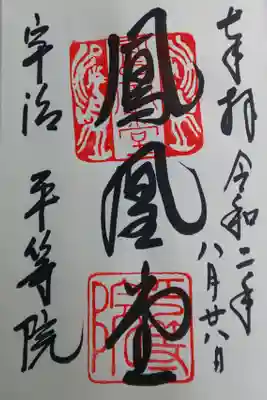 奉拝
令和二年
八月廿八日
鳳凰堂
宇治 平等院